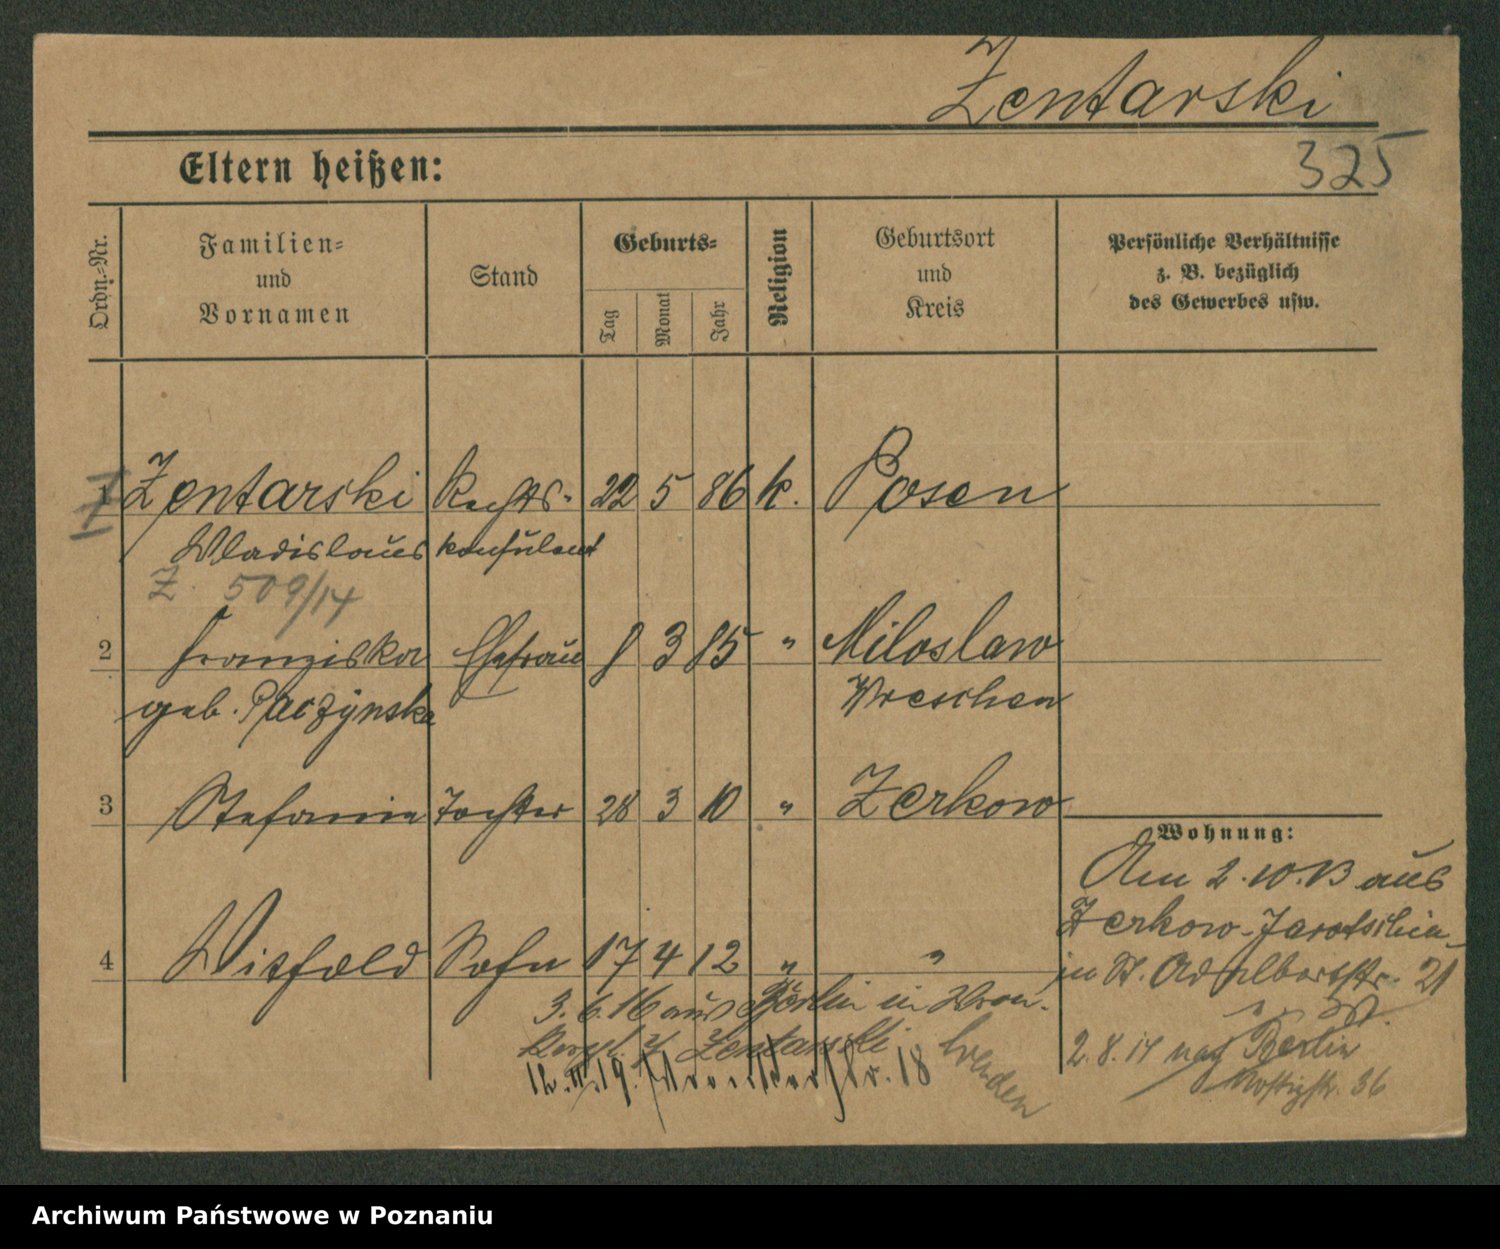 Zentarski
325
Eltern heißen:
Ordn.-Nr.
Familien-
und
Vornamen
Stand
Geburts-
Tag
Monat
Jahr
Religion
Geburtsort
und
Kreis
Persönliche Verhältnisse
z. B. bezüglich
des Gewerbes usw.
1 Zentarski Rechts- 22 5 86 k. Posen
Wladislaus konsulent
Z. 509/14
2 Franziska Ehefrau 8 3 85 " Miloslaw
geb. Paczynska Wreschen
3 Stefanie Tochter 28 3 10 " Zerkow
4 Witfold Sohn 17 4 12 " "
Wohnung:
Am 2.10.13 aus
Zerkow-Jarotschin
in St. Adalbertstr. 21
2.8.14 nach Berlin
36
3.6.16 aus Berlin in Wron-
Zentarski
12. 19. Wronkerstr. 18
wenden
Archiwum Państwowe w Poznaniu